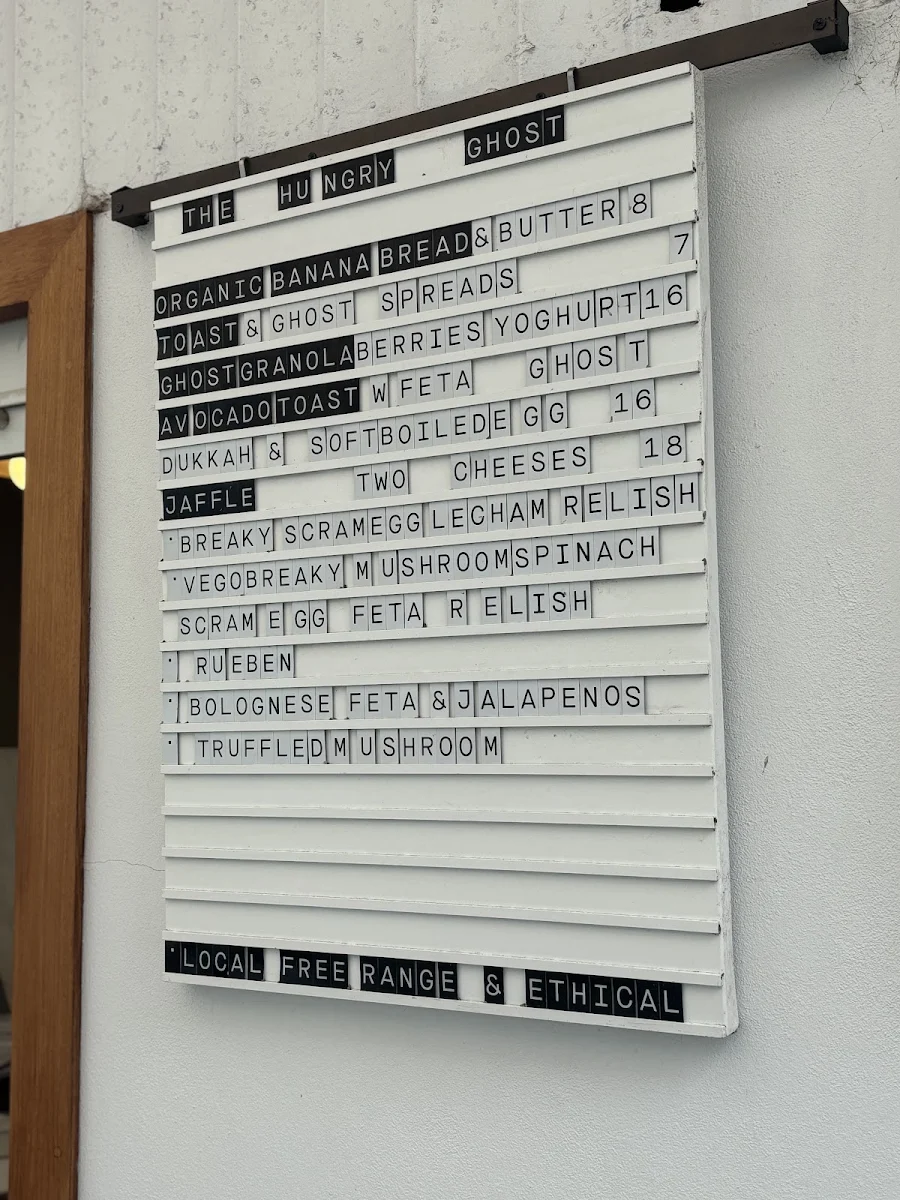 THE HUNGRY GHOST
ORGANIC BANANA BREAD & BUTTER 8
TOAST & GHOST SPREADS 7
GHOST GRANOLA BERRIES YOGHURT 16
AVOCADO TOAST W FETA GHOST
DUKKAH & SOFTBOILED EGG 16
JAFFLE TWO CHEESES 18
·BREAKY SCRAMEGG LECHAM RELISH
·VEGOBREAKY MUSHROOMSPINACH
SCRAM EGG FETA RELISH
· RUEBEN
· BOLOGNESE FETA & JALAPENOS
· TRUFFLED MUSHROOM
·LOCAL FREE RANGE & ETHICAL